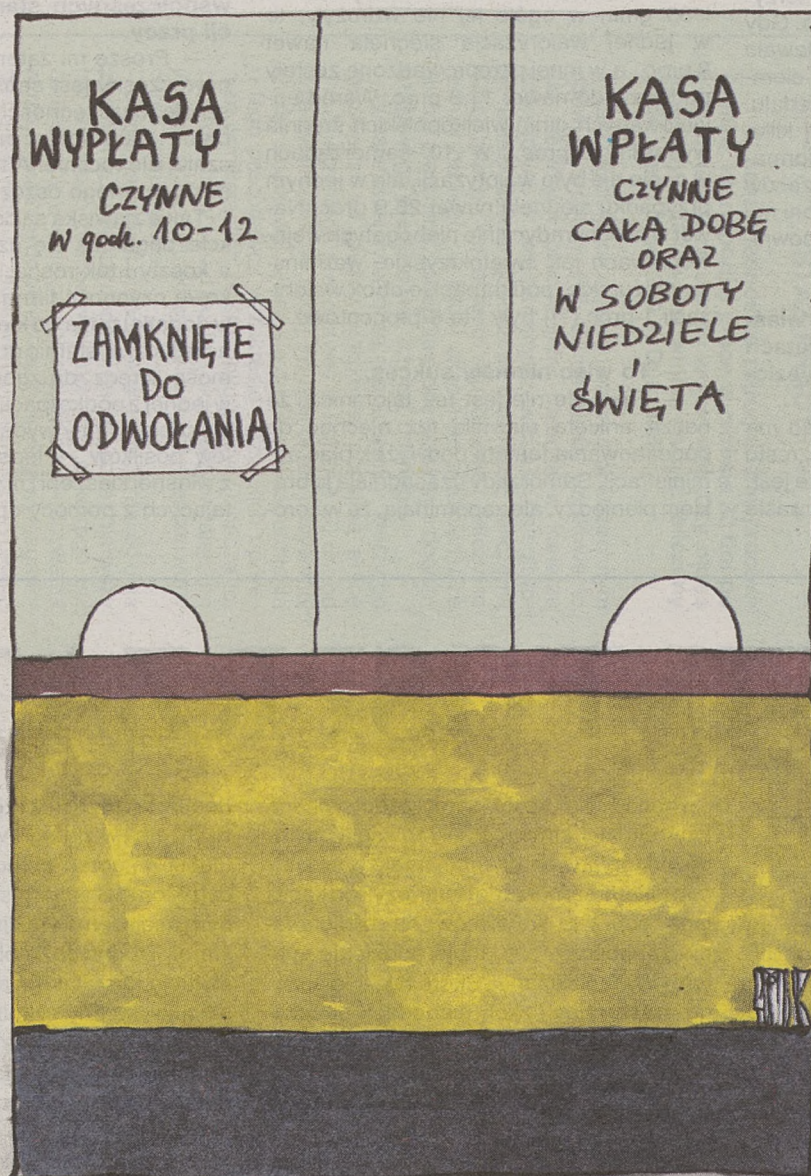 KASA
WYPŁATY
CZYNNE
w godz. 10-12
ZAMKNIĘTE
DO
ODWOŁANIA
KASA
WPŁATY
CZYNNE
CAŁĄ DOBĘ
ORAZ
W SOBOTY
NIEDZIELE
i
ŚWIĘTA